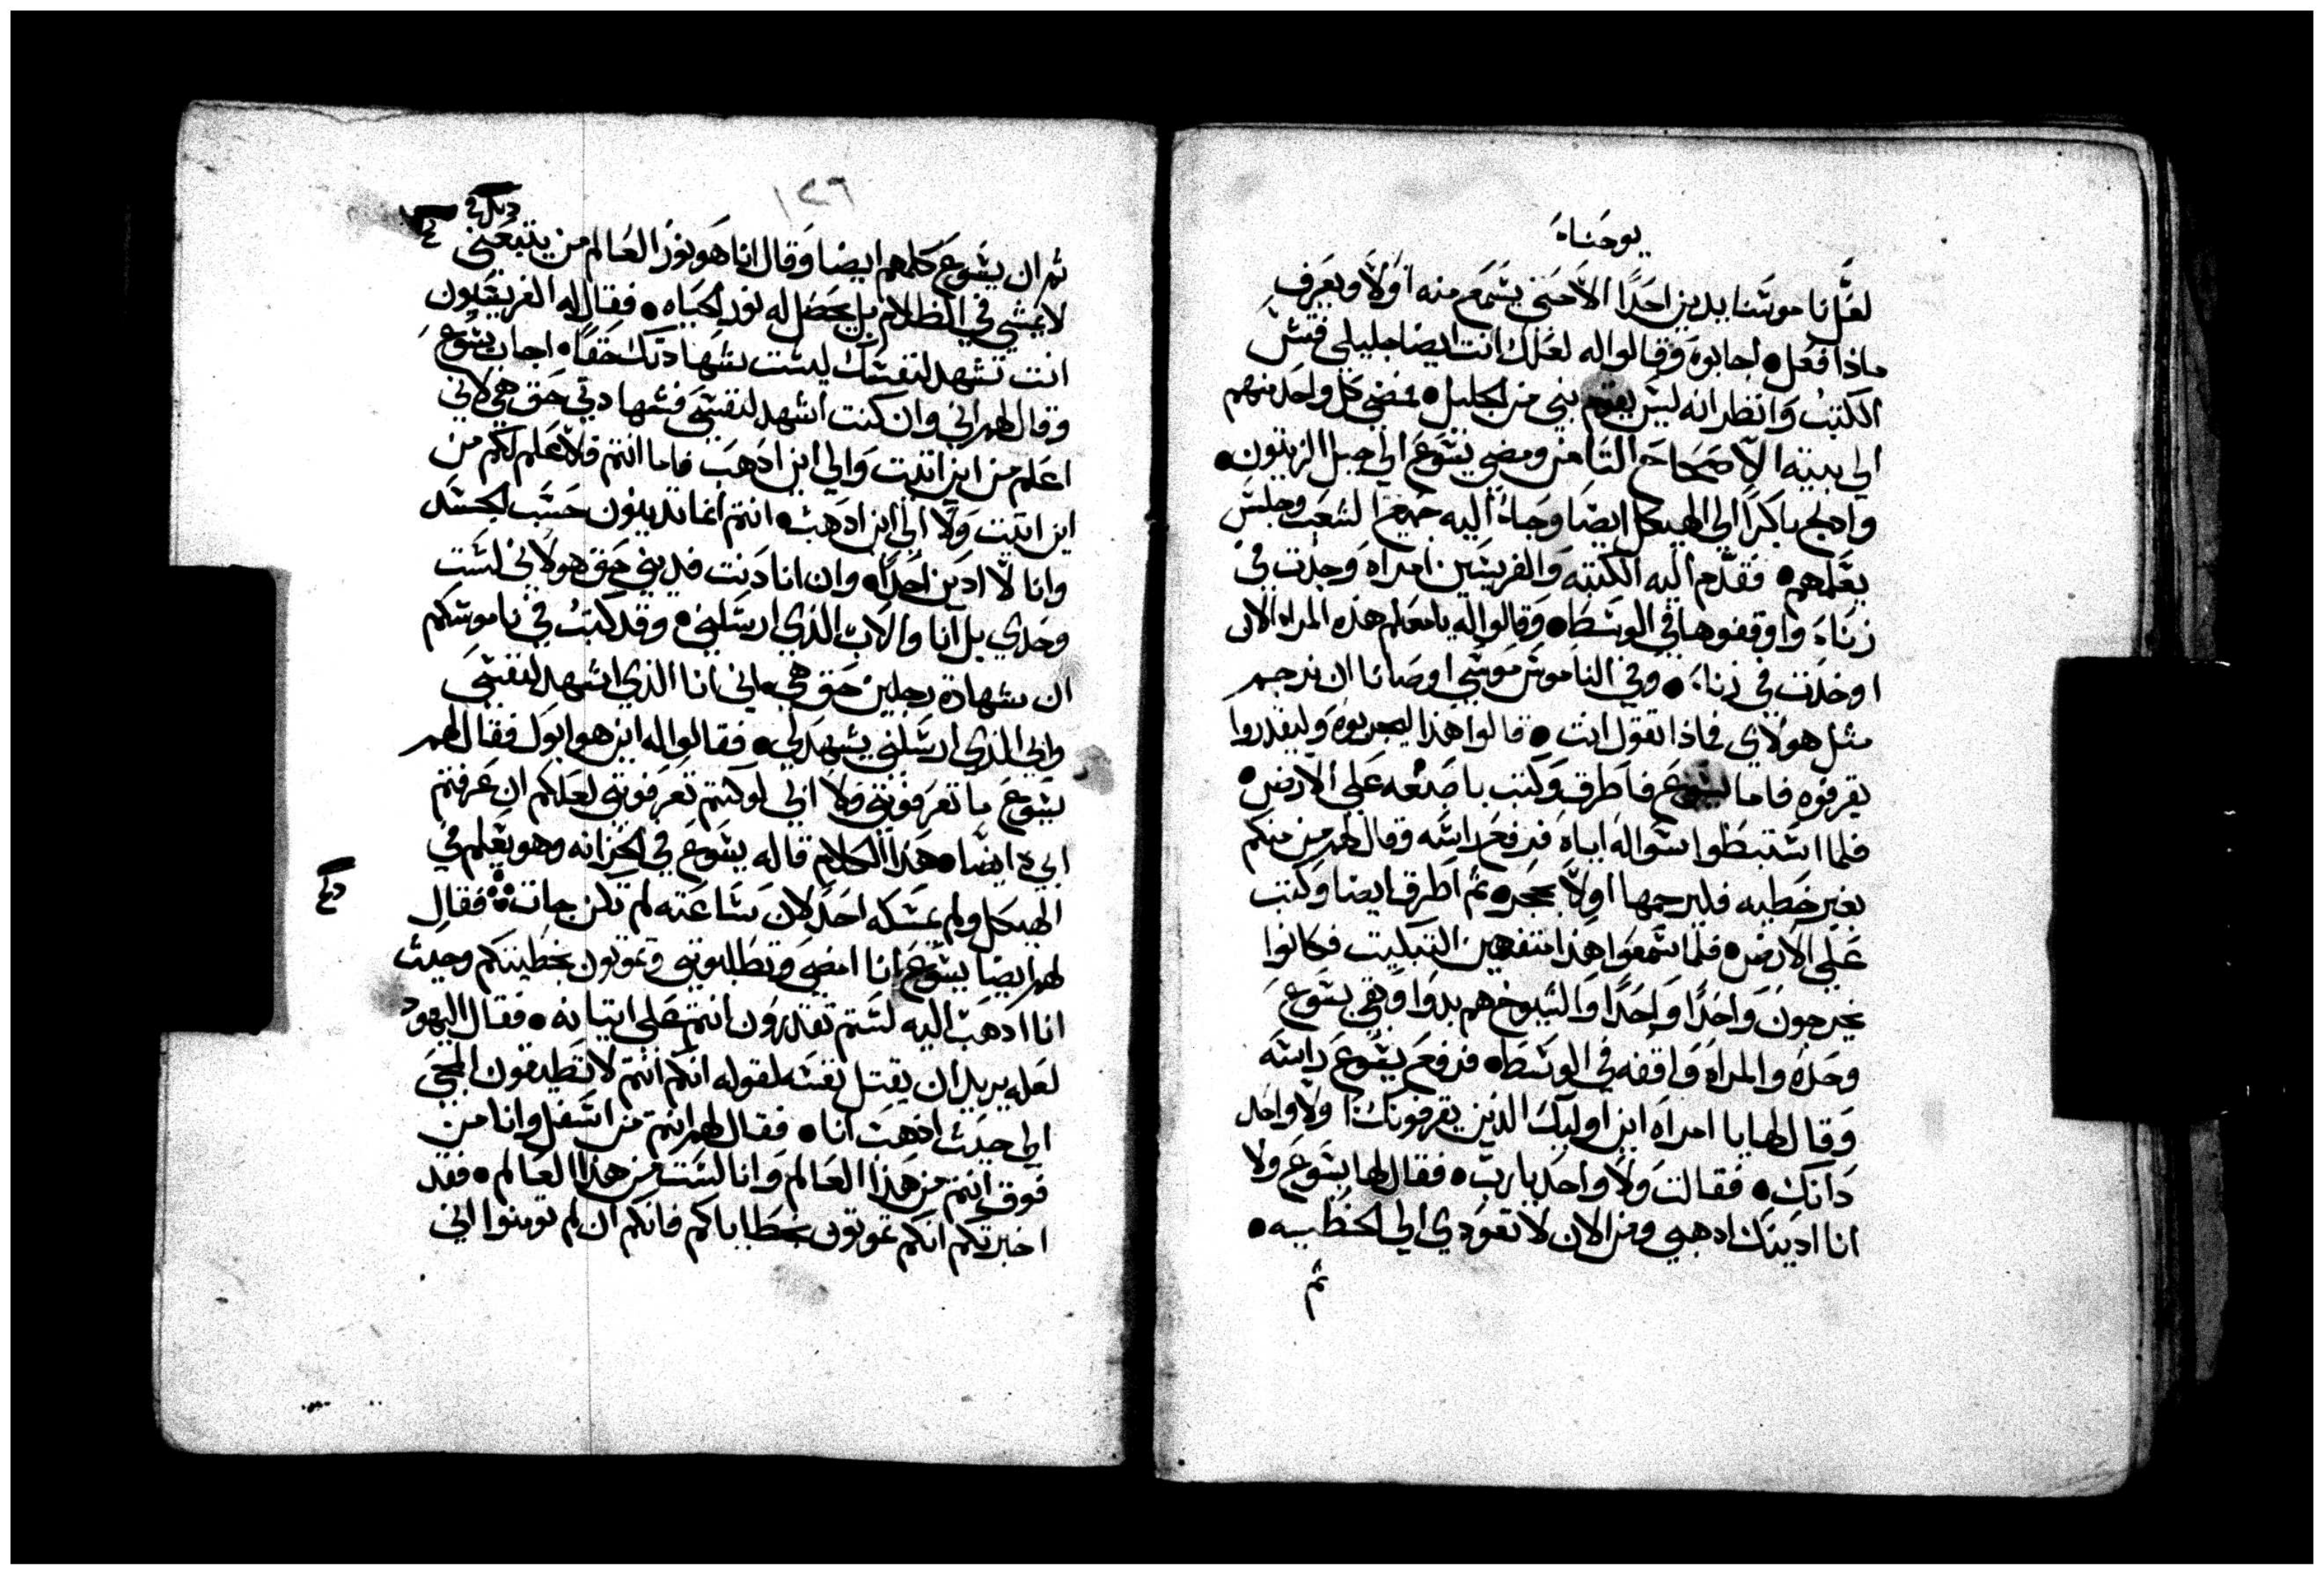 يوحناء
لعَلَّ ناموسَنا يدين احَدًا الاَّ حَتي يسَمَع منه اَوَلاً ويعَرف
ماذا فعَل • اجابوهَ وَقالوا له لعَلك انت ايضا جليلي فتش
الكتبُ وَانظر انه ليسَ يقوم نبي من الجليل • فمضي كل واحَد منهم
الي بيته الاَصحَاح الثامن ومضي يسَوعَ الي جبل الزيتون •
وادلج باكرًا الي الهيكل ايضا وجَاءُ اليه جميع الشعَب وجلسَ
يعَلمهم • فقدَّم اليه الكتبَه وَالفريسَين امراه وَجدَت في
زناءَ وَاوقفوها في الوسَط • وَقالوا له يا معَلم هذه المراه الان
اوخذَت في زناء • وفي الناموسَ موَسَي اوصَانا ان نرجم
مثل هولاي فماذا تقول انت • قالوا هذا ليجربوهَ وليقدروا
يقرفوه فاما يسَوعَ فاطرق وَكتب باصبَعه عَلي الارض •
فلما اسَتبطوا سَواله اياه فرفعَ راسَه وقال لهم من منكم
بغير خَطيه فليرجمها اولاً بحَجر • ثم اطرق ايضا وَكتب
عَلي الارض • فلما سَمعَوا هذا متفهمين التبكيت فكانوا
يخرجون وَاحَدًا وَاحَدًا وَالشيوخ هم بدوا وَبقي يسَوعَ
وحَدهُ وَالمراه وَاقفه في الوسَط • فرفعَ يسَوعَ راسَه
وَقال لها يا امراه اين اوليك الذين يقرفونك اَولا واحَد
دَانك • فقالت وَلا وَاحَد يا ربّ • فقال لها يسَوعَ وَلا
انا ادَينك ادهبي ومن الان لا تعَودي الي الخطيه •
ثم
١٢٦
ثم ان يسَوعَ كلمهم ايضا وَقال انا هَو نورُ العَالم من يتبعَني
لا يمشي في الظلام بل يحَصَل له نور الحَياه • فقال له الفريسَيون
انت تشهد لنفسَك ليسَت شهادتك حَقا • اجاب يسَوعَ
وقال لهم اني وان كنت اشهد لنفسَي فشهادتي حَق هي لاني
اعَلم من اين اتيت وَالي اين ادَهبَ فاما انتم فلا عَلم لكم من
اين اتيت وَلا الي اين ادَهبَ • انتم انما تدينون حَسَب الجسَد
وانا لاَّ ادَين احَدًا • وان انا دَنت فديني حَق هو لاني لسَت
وحَدي بل انا والاب الذي ارسَلني • وقد كتبُ في ناموسَكم
ان شهادة رجلين حَق هي • اني انا الذي اشهد لنفسَي
وابي الذي ارسَلني يشهد لي • فقالوا له اين هو ابوك فقال لهم
يسَوعَ ما تعَرفوني وَلا ابي لو كنتم تعَرفوني لعَلكم ان عَرفتم
ابي ايضا • هَذا الكلام قاله يسَوعَ في الخزانه وهو يعَلم في
الهيكل ولم يمسَكه احَد لان سَاعَته لم تكن جات • فقال
لهم ايضا يسَوعَ انا امضي وَتطَلبوني وَتموتون بخطيتكم وحيث
انا ادَهَب اليه لسَتم تقدرون انتم عَلي اتيانه • فقال اليهود
لعَله يريد ان يقتل نفسَه لقوله انكم انتم لا تطَيقون المجي
الي حَيث ادَهبَ انا • فقال لهم انتم من اسَفل وانا من
فوق انتم من هَذا العَالم وَانا لسَت من هذا العَالم • فقد
اخبرتكم انكم تموتون بخطَاياكم فانكم ان لم تومنوا اني